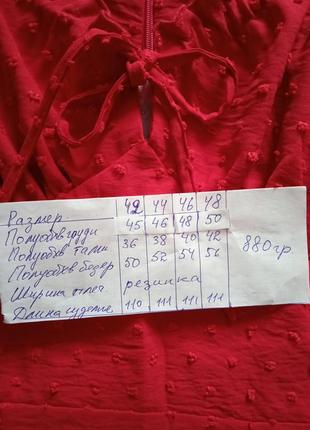 Размер 42 44 46 48
Полуобхв груди 45 46 48 50
Полуобхв талии 36 38 40 42
Полуобхв бедер 50 52 54 56
Ширина плеч резинка
Длина изделие 110 111 111 111
880гр.